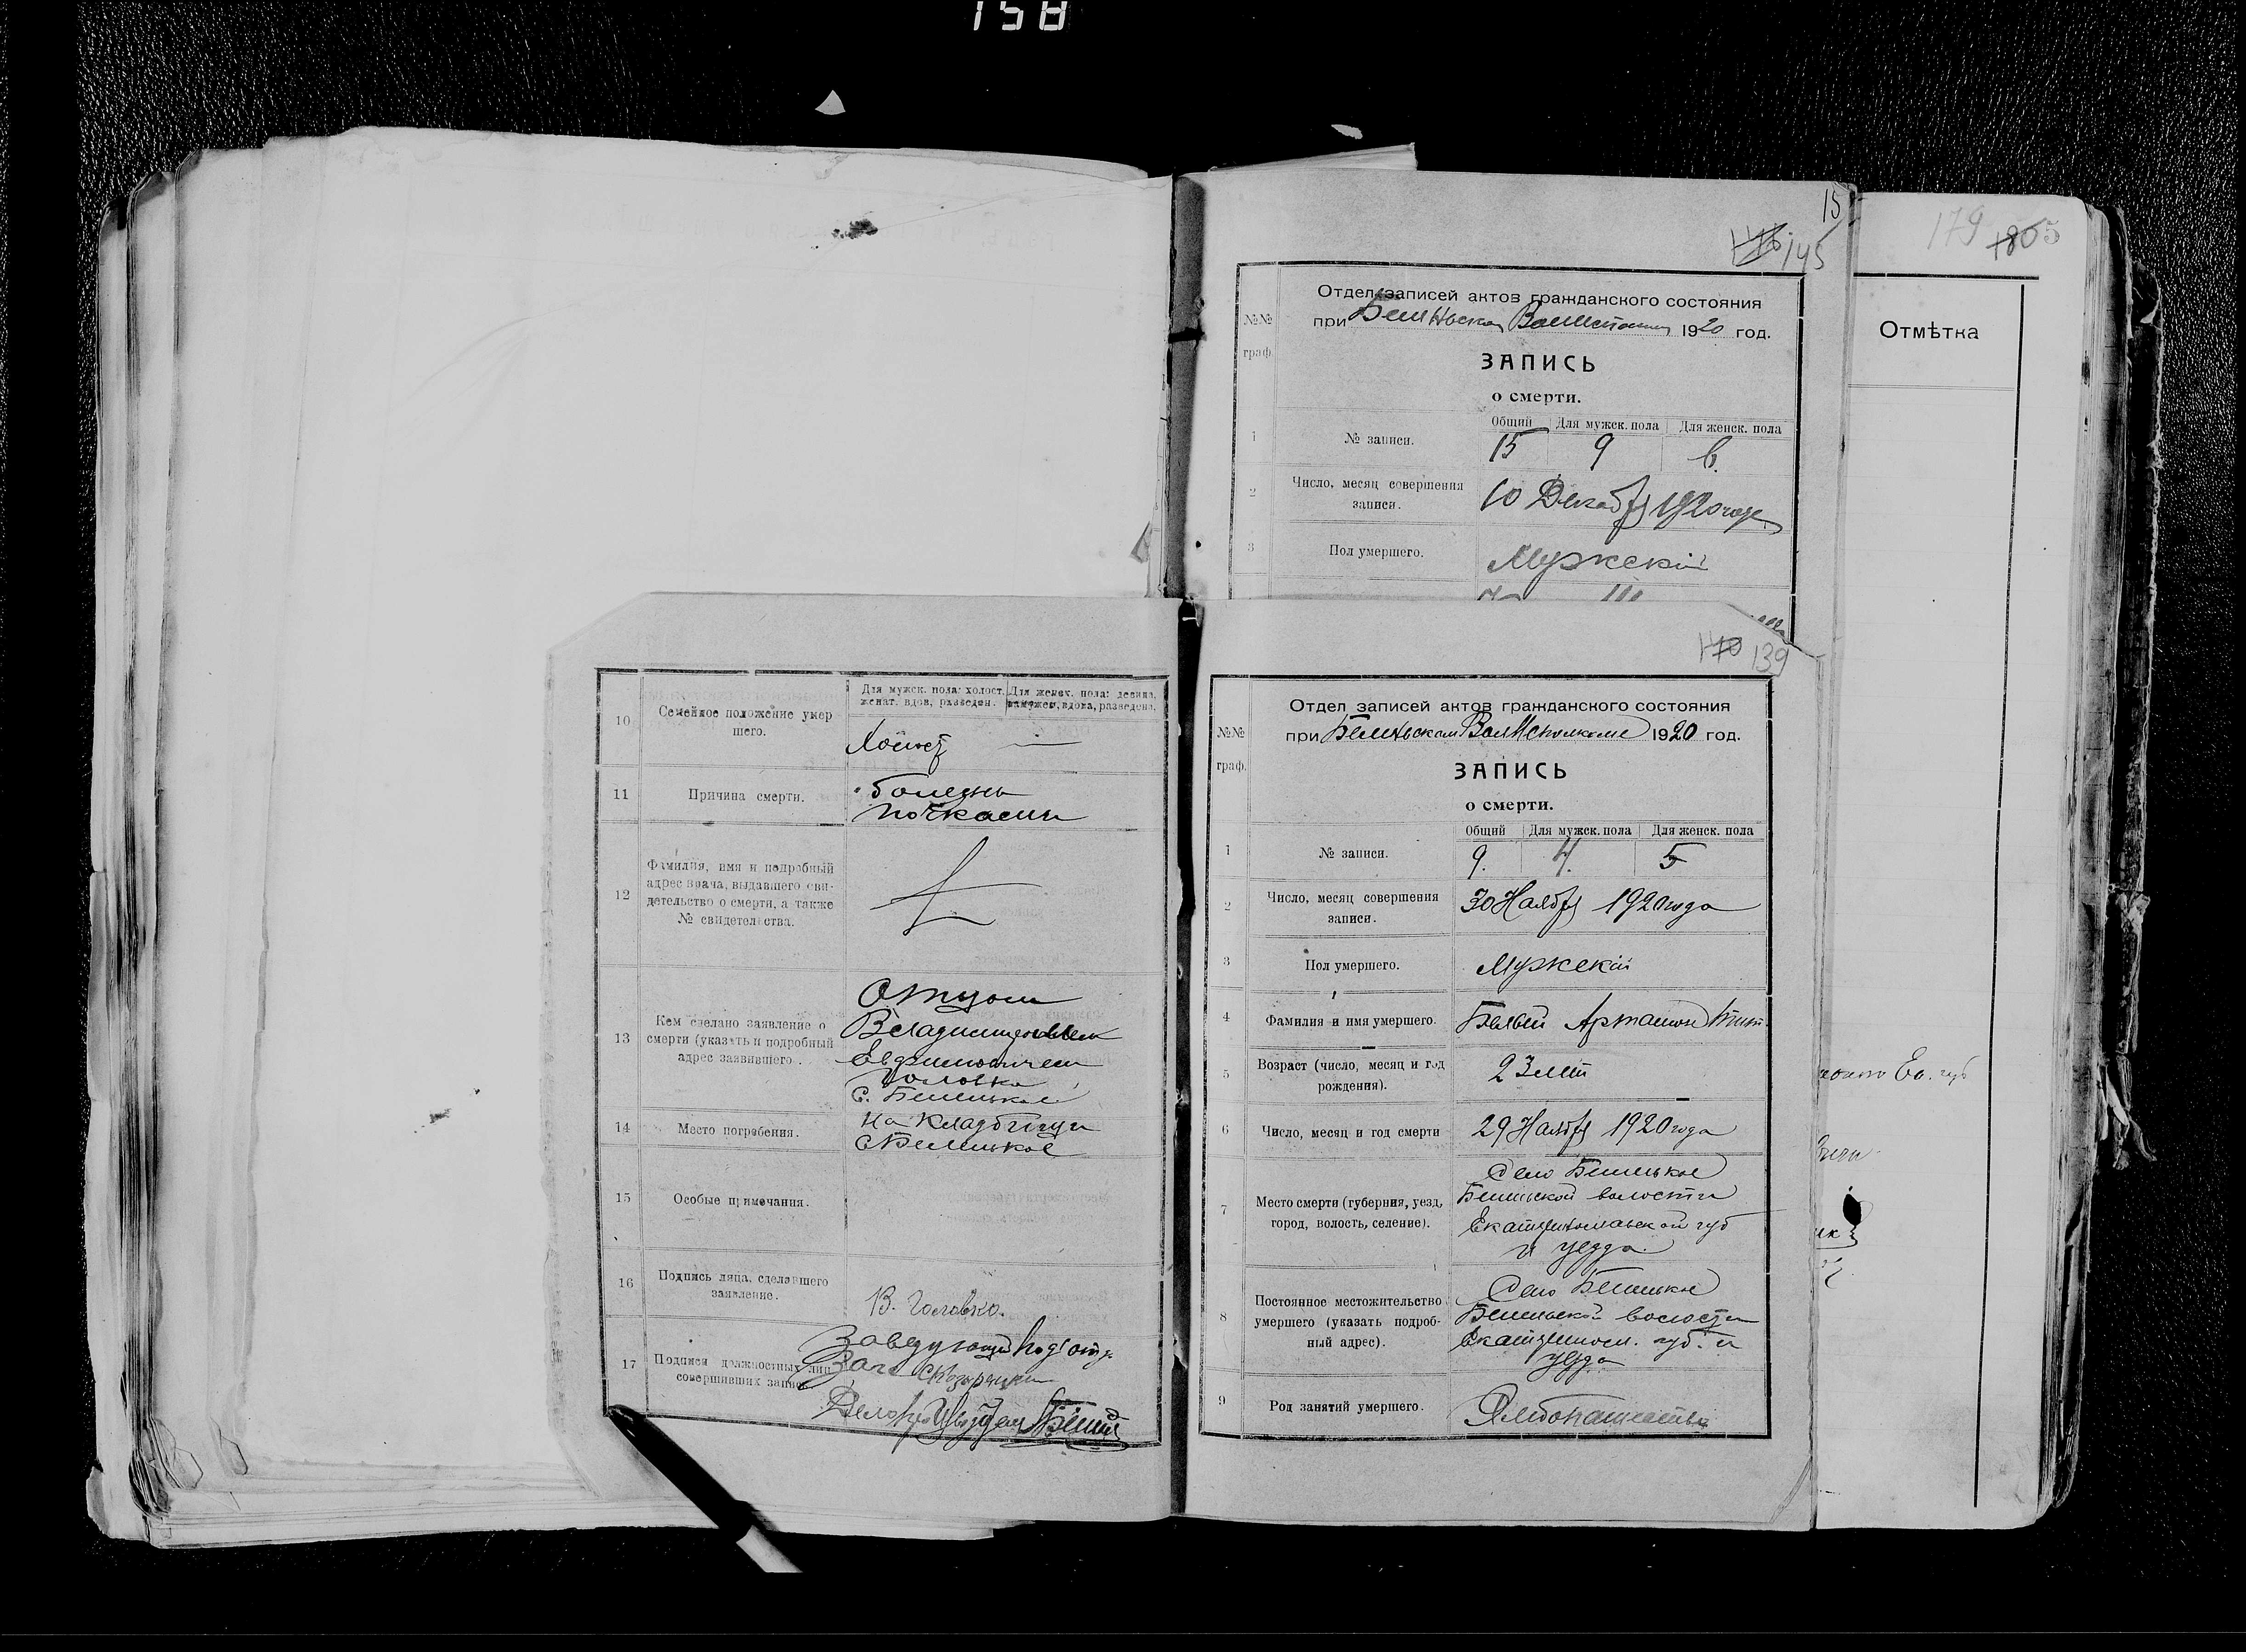 158
15
146 145
179 1805
Отмѣтка
№№
граф.
Отдел записей актов гражданского состояния
при 1920 год.
ЗАПИСЬ
о смерти.
Общий Для мужск. пола Для женск. пола
1 № записи. 15 9 6.
2 Число, месяц совершения
записи. 10 Декабря 1920 года
3 Пол умершего. Мужскій
10 Семейное положение умер
шего.
Для мужск. пола: холост. Для женск. пола: девица,
женат, вдов, разведен. замужем, вдова, разведена.
Холост —
11 Причина смерти. болезнь
почками
12 Фамилия, имя и подробный
адрес врача, выдавшего сви-
детельство о смерти, а также
№ свидетельства.
13 Кем сделано заявление о
смерти (указать и подробный
адрес заявившего).
Отцом
Евфимовичем
Головко
с.
14 Место погребения. На кладбищи
15 Особые примечания.
16 Подпись лица, сделавшего
заявление. В. Головко.
17 Подписи должностных лиц
совершивших запись.
Заведующий
139
№№
граф.
Отдел записей актов гражданского состояния
при 1920 год.
ЗАПИСЬ
о смерти.
Общий Для мужск. пола Для женск. пола
1 № записи. 9. 4. 5
2 Число, месяц совершения
записи. 30 Ноября 1920 года
3 Пол умершего. Мужскій
4 Фамилия и имя умершего. Белый Артамон
5 Возраст (число, месяц и год
рождения). 23 лет
6 Число, месяц и год смерти 29 Ноября 1920 года
7 Место смерти (губерния, уезд,
город, волость, селение).
Село
волости
Екатеринославской губ
и уезда.
8 Постоянное местожительство
умершего (указать подроб-
ный адрес).
Село
волости
Екатериносл. губ. и
уезда
9 Род занятий умершего. Хлебопашество